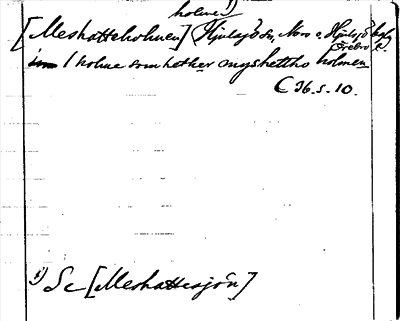 holme 1)
[Meshatteholmen] Hjulsjö sn, Nora o. Hjulsjö bgl.
Örebro l.
1 holme som hether myshettho holmen
C 36. s. 10.
1) Se [Meshattesjön]